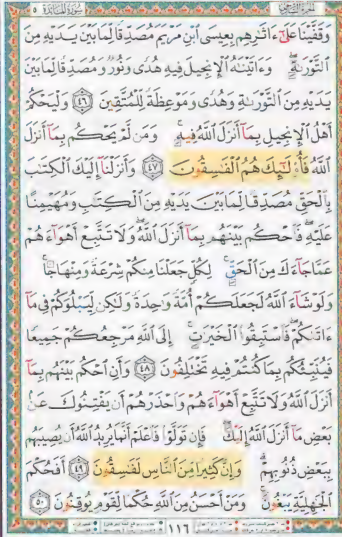 سورة المائدة ٥
وَقَفَّيْنَا عَلَىٰٓ ءَاثَٰرِهِم بِعِيسَى ٱبْنِ مَرْيَمَ مُصَدِّقًا لِّمَا بَيْنَ يَدَيْهِ مِنَ
ٱلتَّوْرَىٰةِ ۖ وَءَاتَيْنَٰهُ ٱلْإِنجِيلَ فِيهِ هُدًى وَنُورٌ وَمُصَدِّقًا لِّمَا بَيْنَ
يَدَيْهِ مِنَ ٱلتَّوْرَىٰةِ وَهُدًى وَمَوْعِظَةً لِّلْمُتَّقِينَ ٤٦ وَلْيَحْكُمْ
أَهْلُ ٱلْإِنجِيلِ بِمَآ أَنزَلَ ٱللَّهُ فِيهِ ۚ وَمَن لَّمْ يَحْكُم بِمَآ أَنزَلَ
ٱللَّهُ فَأُو۟لَٰٓئِكَ هُمُ ٱلْفَٰسِقُونَ ٤٧ وَأَنزَلْنَآ إِلَيْكَ ٱلْكِتَٰبَ
بِٱلْحَقِّ مُصَدِّقًا لِّمَا بَيْنَ يَدَيْهِ مِنَ ٱلْكِتَٰبِ وَمُهَيْمِنًا
عَلَيْهِ ۖ فَٱحْكُم بَيْنَهُم بِمَآ أَنزَلَ ٱللَّهُ ۖ وَلَا تَتَّبِعْ أَهْوَآءَهُمْ
عَمَّا جَآءَكَ مِنَ ٱلْحَقِّ ۚ لِكُلٍّ جَعَلْنَا مِنكُمْ شِرْعَةً وَمِنْهَاجًا ۚ
وَلَوْ شَآءَ ٱللَّهُ لَجَعَلَكُمْ أُمَّةً وَٰحِدَةً وَلَٰكِن لِّيَبْلُوَكُمْ فِى مَآ
ءَاتَىٰكُمْ ۖ فَٱسْتَبِقُوا۟ ٱلْخَيْرَٰتِ ۚ إِلَى ٱللَّهِ مَرْجِعُكُمْ جَمِيعًا
فَيُنَبِّئُكُم بِمَا كُنتُمْ فِيهِ تَخْتَلِفُونَ ٤٨ وَأَنِ ٱحْكُم بَيْنَهُم بِمَآ
أَنزَلَ ٱللَّهُ وَلَا تَتَّبِعْ أَهْوَآءَهُمْ وَٱحْذَرْهُمْ أَن يَفْتِنُوكَ عَنۢ
بَعْضِ مَآ أَنزَلَ ٱللَّهُ إِلَيْكَ ۖ فَإِن تَوَلَّوْا۟ فَٱعْلَمْ أَنَّمَا يُرِيدُ ٱللَّهُ أَن يُصِيبَهُم
بِبَعْضِ ذُنُوبِهِمْ ۗ وَإِنَّ كَثِيرًا مِّنَ ٱلنَّاسِ لَفَٰسِقُونَ ٤٩ أَفَحُكْمَ
ٱلْجَٰهِلِيَّةِ يَبْغُونَ ۚ وَمَنْ أَحْسَنُ مِنَ ٱللَّهِ حُكْمًا لِّقَوْمٍ يُوقِنُونَ ٥٠
١١٦